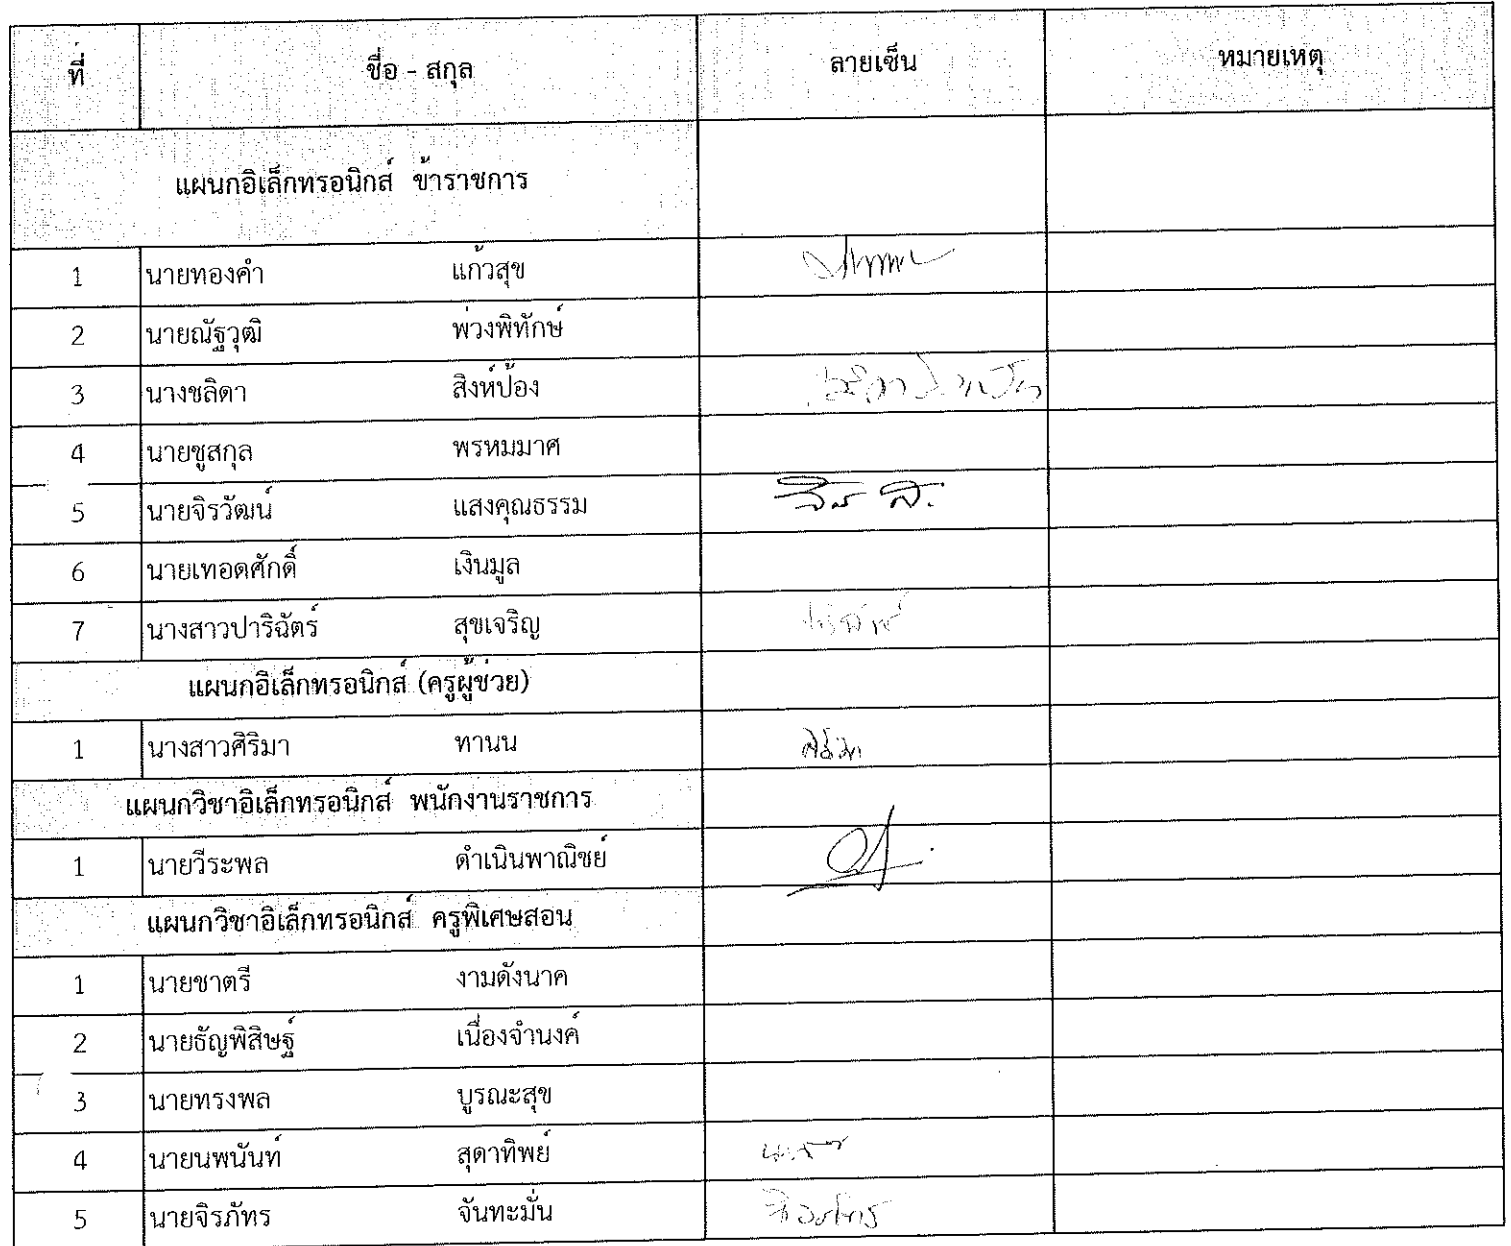 ที่ ชื่อ - สกุล ลายเซ็น หมายเหตุ
แผนกอิเล็กทรอนิกส์ ข้าราชการ
1 นายทองคำ แก้วสุข
2 นายณัฐวุฒิ พ่วงพิทักษ์
3 นางชลิดา สิงห์ป้อง
4 นายชูสกุล พรหมมาศ
5 นายจิรวัฒน์ แสงคุณธรรม
6 นายเทอดศักดิ์ เงินมูล
7 นางสาวปาริฉัตร์ สุขเจริญ
แผนกอิเล็กทรอนิกส์ (ครูผู้ช่วย)
1 นางสาวศิริมา ทานน ศิริมา
แผนกวิชาอิเล็กทรอนิกส์ พนักงานราชการ
1 นายวีระพล ดำเนินพาณิชย์
แผนกวิชาอิเล็กทรอนิกส์ ครูพิเศษสอน
1 นายชาตรี งามดังนาค
2 นายธัญพิสิษฐ์ เนื่องจำนงค์
3 นายทรงพล บูรณะสุข
4 นายนพนันท์ สุดาทิพย์
5 นายจิรภัทร จันทะมั่น